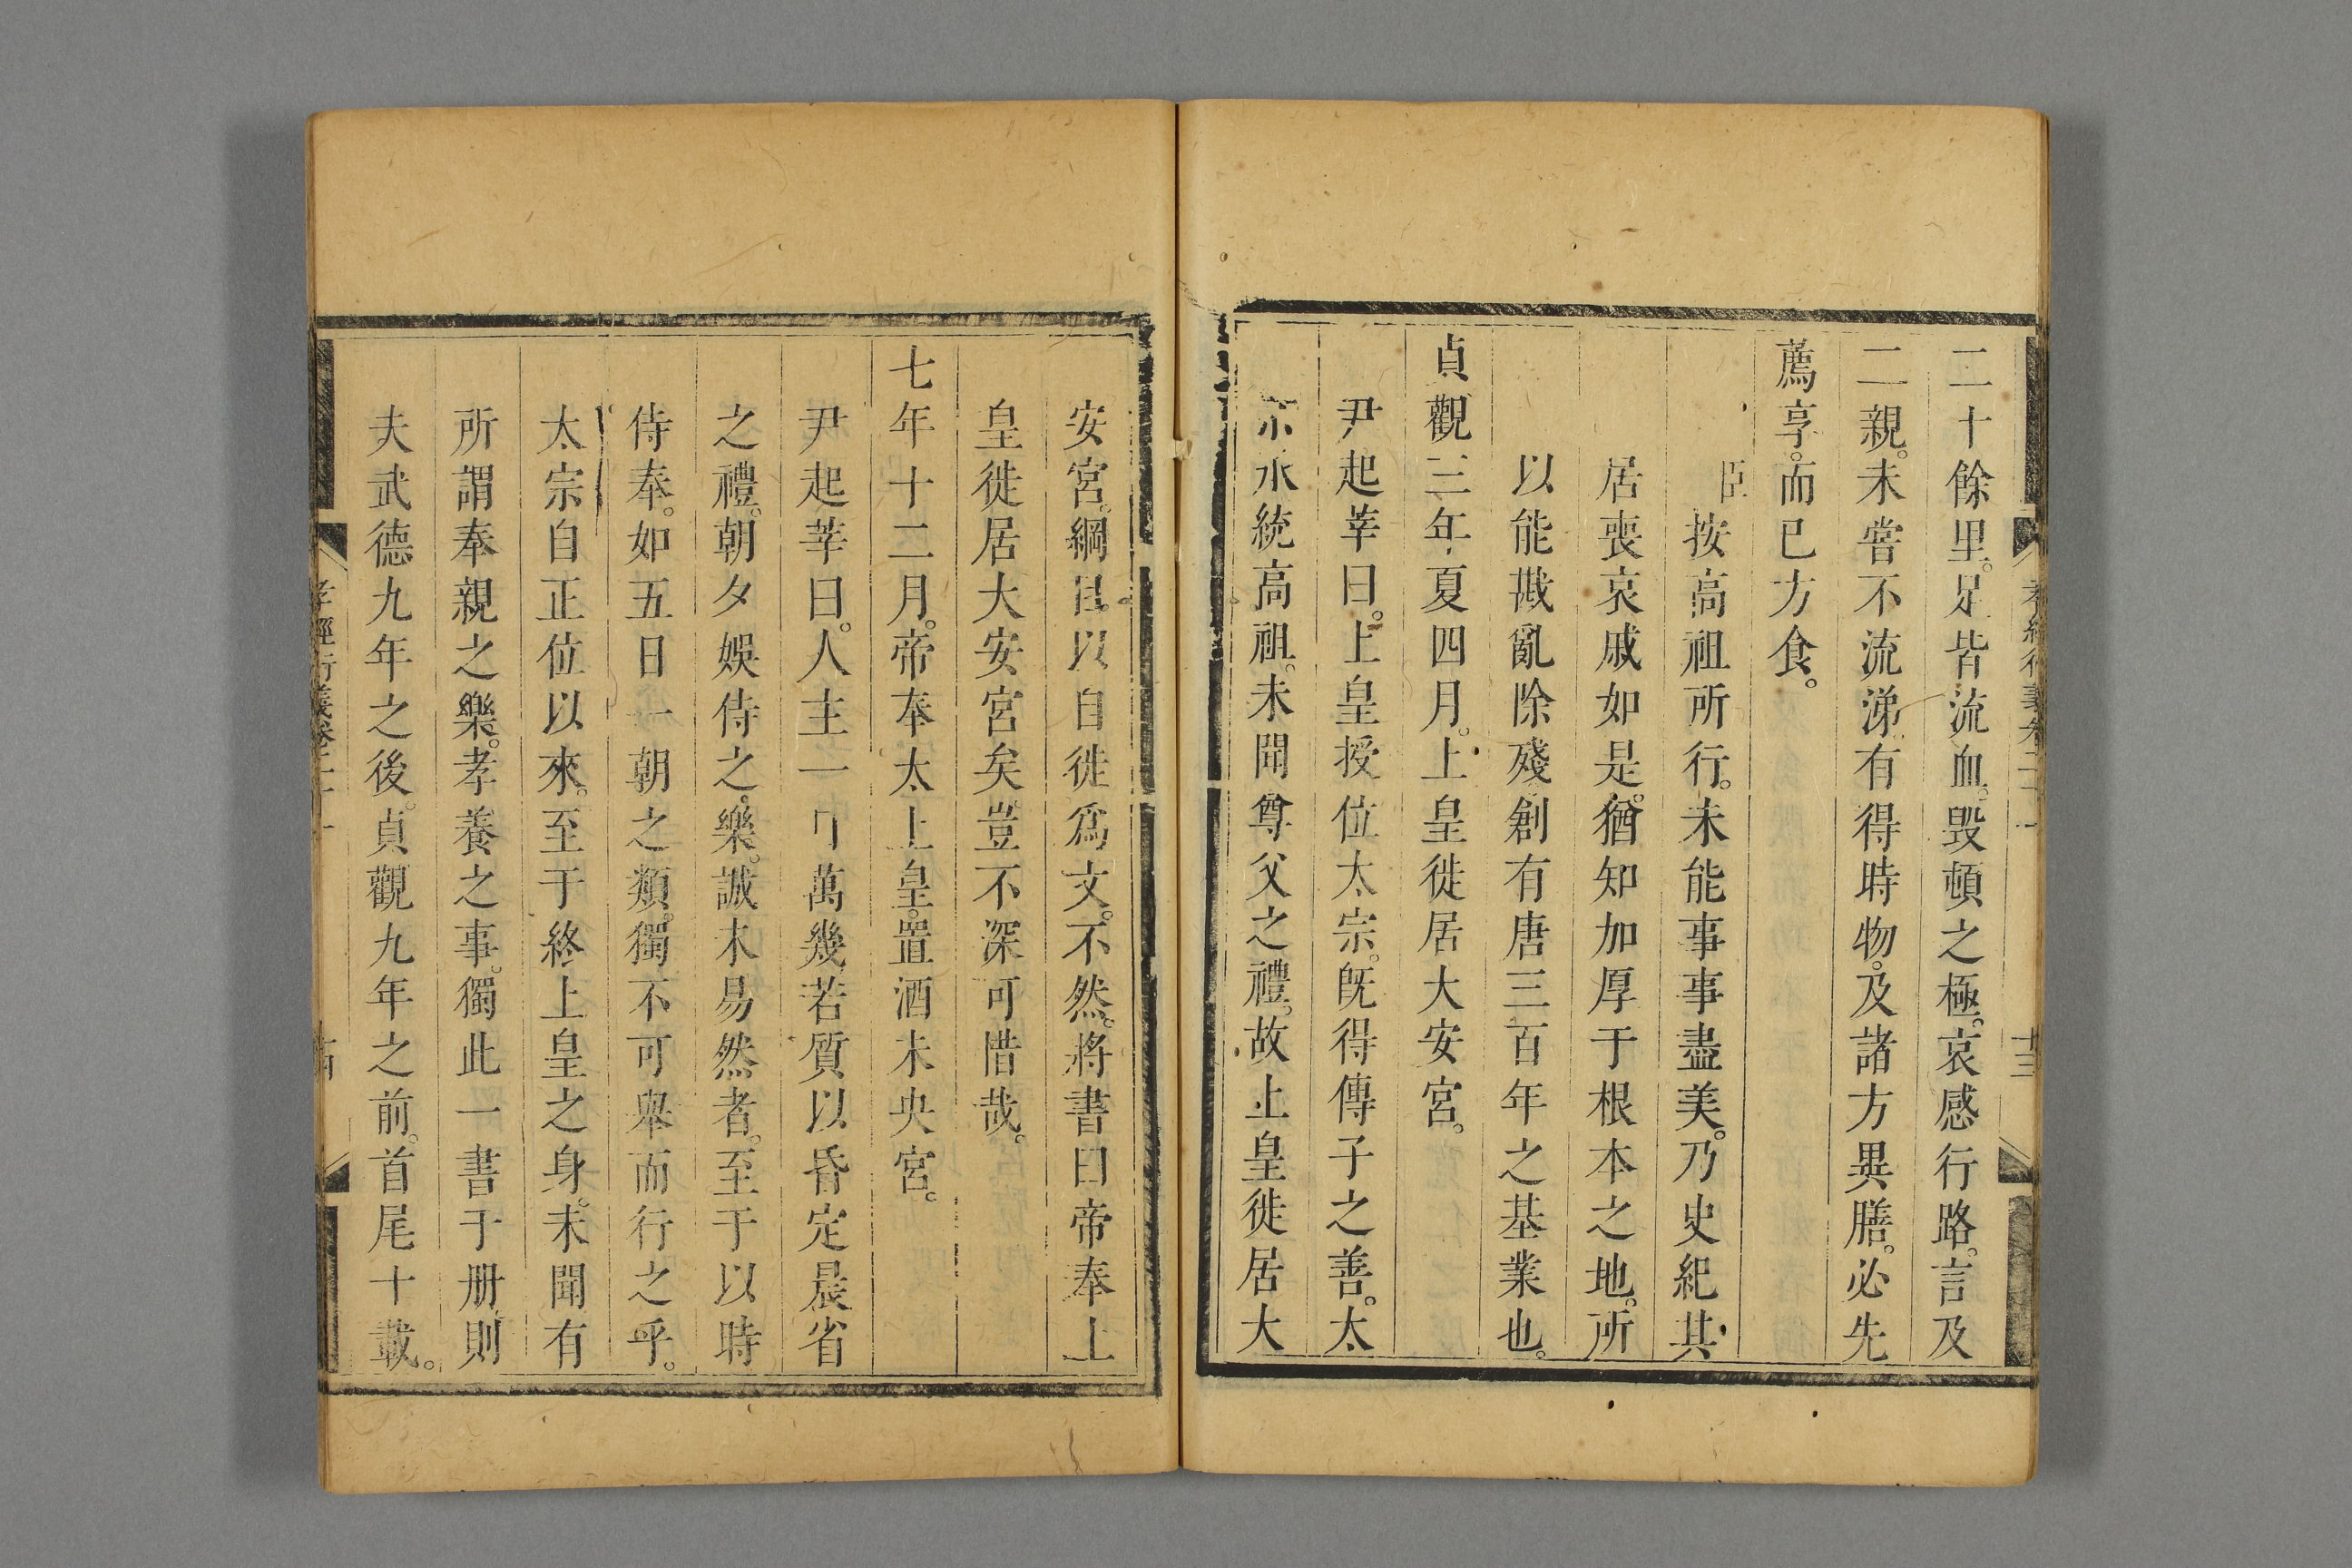 二十餘里。足皆流血。毀頓之極。哀感行路。言及
二親。未嘗不流涕。有得時物。及諸方異膳。必先
薦享。而已方食。
臣按高祖所行。未能事事盡美。乃史紀其
居喪哀戚如是。猶知加厚于根本之地。所
以能戡亂除殘。創有唐三百年之基業也。
貞觀三年夏四月。上皇徙居大安宮。
尹起莘曰。上皇授位太宗。旣得傳子之善。太
宗承統高祖。未聞尊父之禮。故上皇徙居大
安宮。綱目以自徙爲文。不然。將書曰帝奉上
皇徙居大安宮矣。豈不深可惜哉。
七年十二月。帝奉太上皇。置酒未央宮。
尹起莘曰。人主一日萬幾。若質以昏定晨省
之禮。朝夕娛侍之樂。誠未易然者。至于以時
侍奉。如五日一朝之類。獨不可舉而行之乎。
太宗自正位以來。至于終上皇之身。未聞有
所謂奉親之樂。孝養之事。獨此一書于册。則
夫武德九年之後。貞觀九年之前。首尾十載。
孝經衍義卷二十一
十四